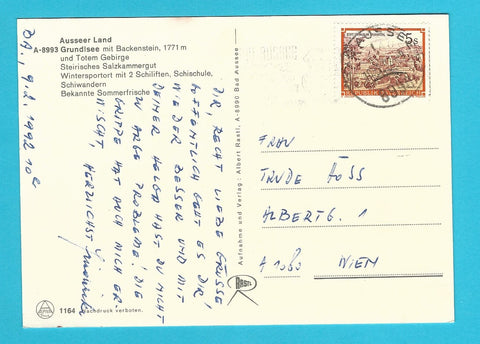 Ausseer Land
A-8993 Grundlsee mit Backenstein, 1771 m
und Totem Gebirge
Steirisches Salzkammergut
Wintersportort mit 2 Schiliften, Schischule,
Schiwandern
Bekannte Sommerfrische
1992
DIR, RECHT LIEBE GRÜSSE
HOFFENTLICH GEHT ES DIR
WIEDER BESSER UND MIT
DEINER HELGA HAST DU NICHT
ZU ARGE PROBLEME! DIE
GRIPPE HAT AUCH MICH ER-
WISCHT, HERZLICHST
1164 Nachdruck verboten.
Aufnahme und Verlag: Albert Rastl, A-8990 Bad Aussee
RASTL
5s
FRAU
TRUDE HÖSS
ALBERTG. 1
A 1080 WIEN